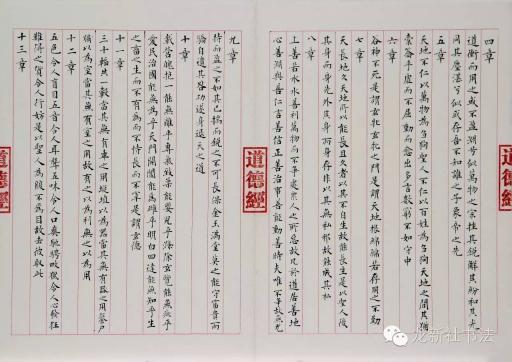 四章
道衝而用之或不盈淵兮似萬物之宗挫其銳解其紛和其光
同其塵湛兮似或存吾不知誰之子象帝之先
五章
天地不仁以萬物為芻狗聖人不仁以百姓為芻狗天地之間其猶
橐籥乎虛而不屈動而愈出多言數窮不如守中
六章
谷神不死是謂玄牝玄牝之門是謂天地根綿綿若存用之不勤
七章
天長地久天地所以能長且久者以其不自生故能長生是以聖人後
其身而身先外其身而身存非以其無私邪故能成其私
八章
上善若水水善利萬物而不爭處眾人之所惡故幾於道居善地
心善淵與善仁言善信正善治事善能動善時夫唯不爭故無尤
道德經
九章
持而盈之不如其已揣而銳之不可長保金玉滿堂莫之能守富貴而
驕自遺其咎功遂身退天之道
十章
載營魄抱一能無離乎專氣致柔能嬰兒乎滌除玄覽能無疵乎
愛民治國能無為乎天門開闔能為雌乎明白四達能無知乎生
之畜之生而不有為而不恃長而不宰是謂玄德
十一章
三十輻共一轂當其無有車之用埏埴以為器當其無有器之用鑿戶
牖以為室當其無有室之用故有之以為利無之以為用
十二章
五色令人目盲五音令人耳聾五味令人口爽馳騁畋獵令人心發狂
難得之貨令人行妨是以聖人為腹不為目故去彼取此
十三章
道德經
龙新社书法